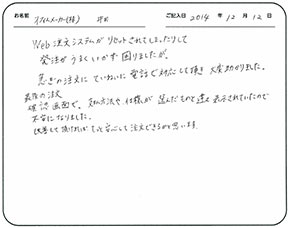 お名前 ネームメーカー(株) 坪田 ご記入日 2014年12月12日
Web注文システムがリセットされてしまったりして
発注がうまくいかず困りましたが、
急ぎの注文にていねいに電話で対応して頂き大変助かりました。
最後の注文
確認画面で、支払方法や仕様が選んだものと違く表示されていたので
不安になりました。
改善して頂ければもっと安心して注文できるかと思います。